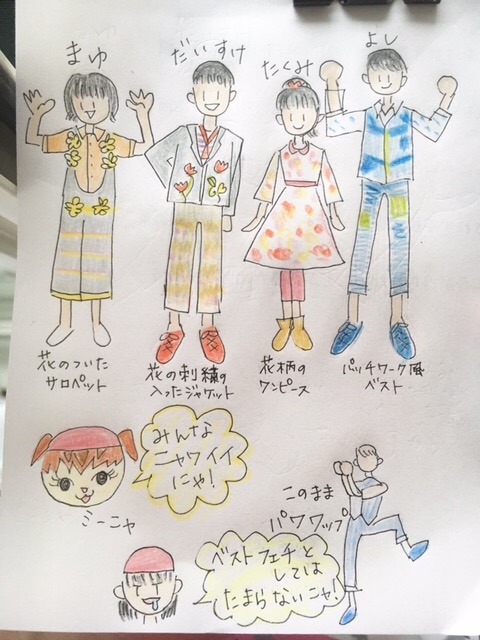 まゆ
だいすけ
たくみ
よし
花のついた
サロペット
花の刺繍の
入ったジャケット
花柄の
ワンピース
パッチワーク風
ベスト
みんな
ニャワイイ
にゃ!
ミーニャ
このまま
パワワップ
ベストフェチと
しては
たまらないニャ!